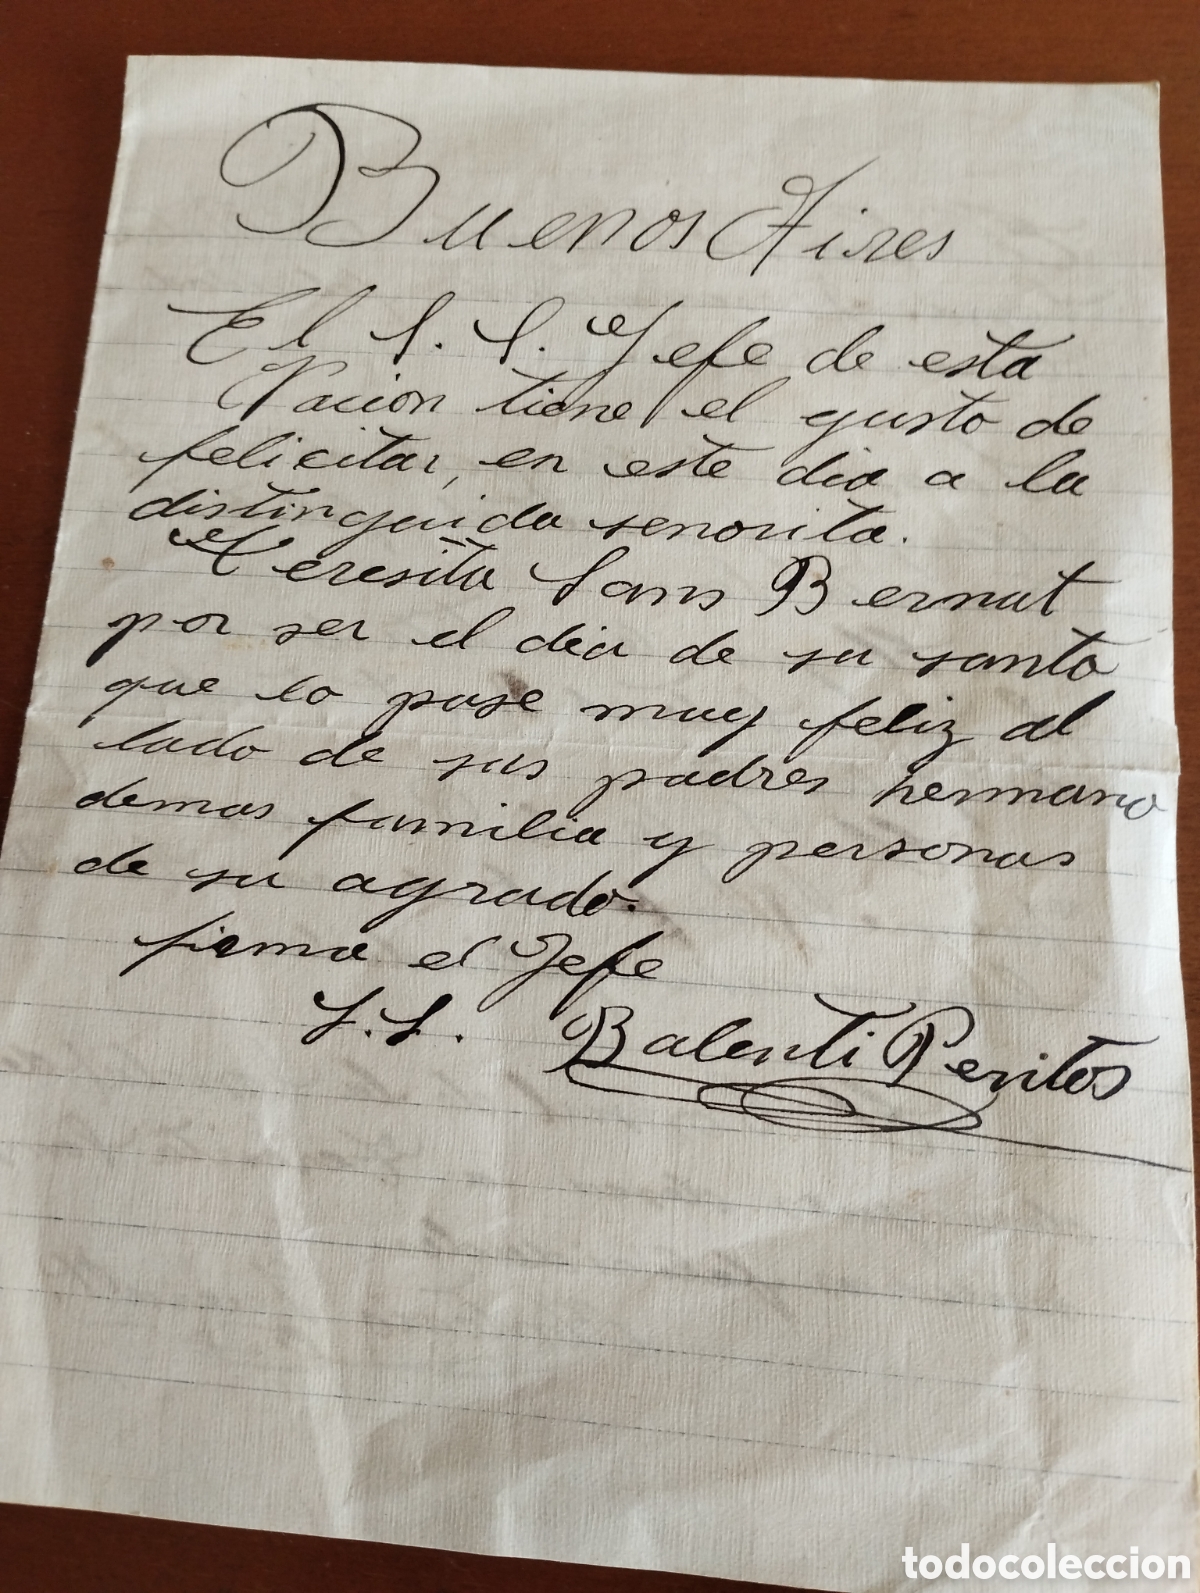 Buenos Aires
El S. S. Jefe de esta
Nacion tiene el gusto de
felicitar, en este dia a la
distinguida senorita.
Teresita Sans Bernat
por ser el dia de su santo
que lo pase muy feliz al
lado de sus padres hermano
demas familia y personas
de su agrado.
firma el Jefe
S. S. Balenti Peritos
todocoleccion